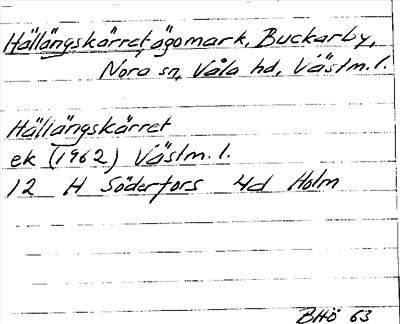 Hällängskärret, ägomark, Buckarby,
Nora sn, Våla hd, Västm. l.
Hällängskärret
ek (1962) Västm. l.
12 H Söderfors 4d Holm
BHö 63